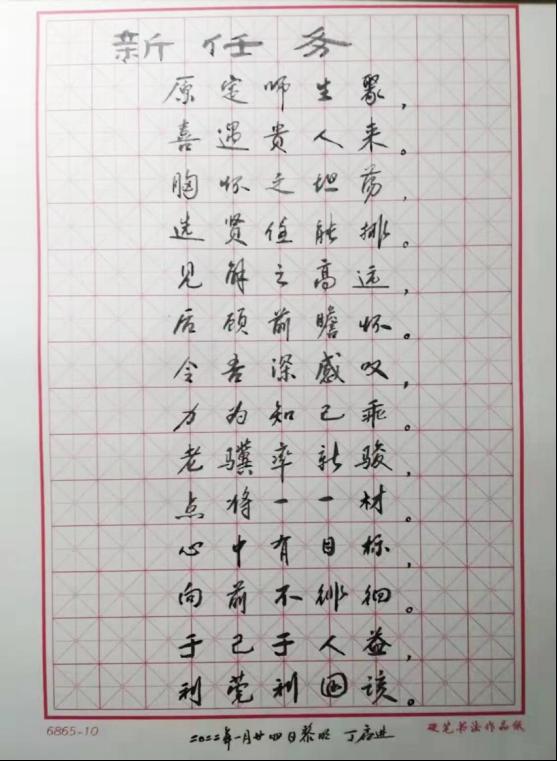 新任务
原定师生聚，
喜遇贵人来。
胸怀之坦荡，
选贤值能排。
见解之高远，
后顾前瞻怀。
令吾深感叹，
力为知己乖。
老骥率新骏，
点将一一材。
心中有目标，
向前不徘徊。
于己于人益，
利党利国该。
6865-10
2022年一月廿四日黎明
硬笔书法作品纸